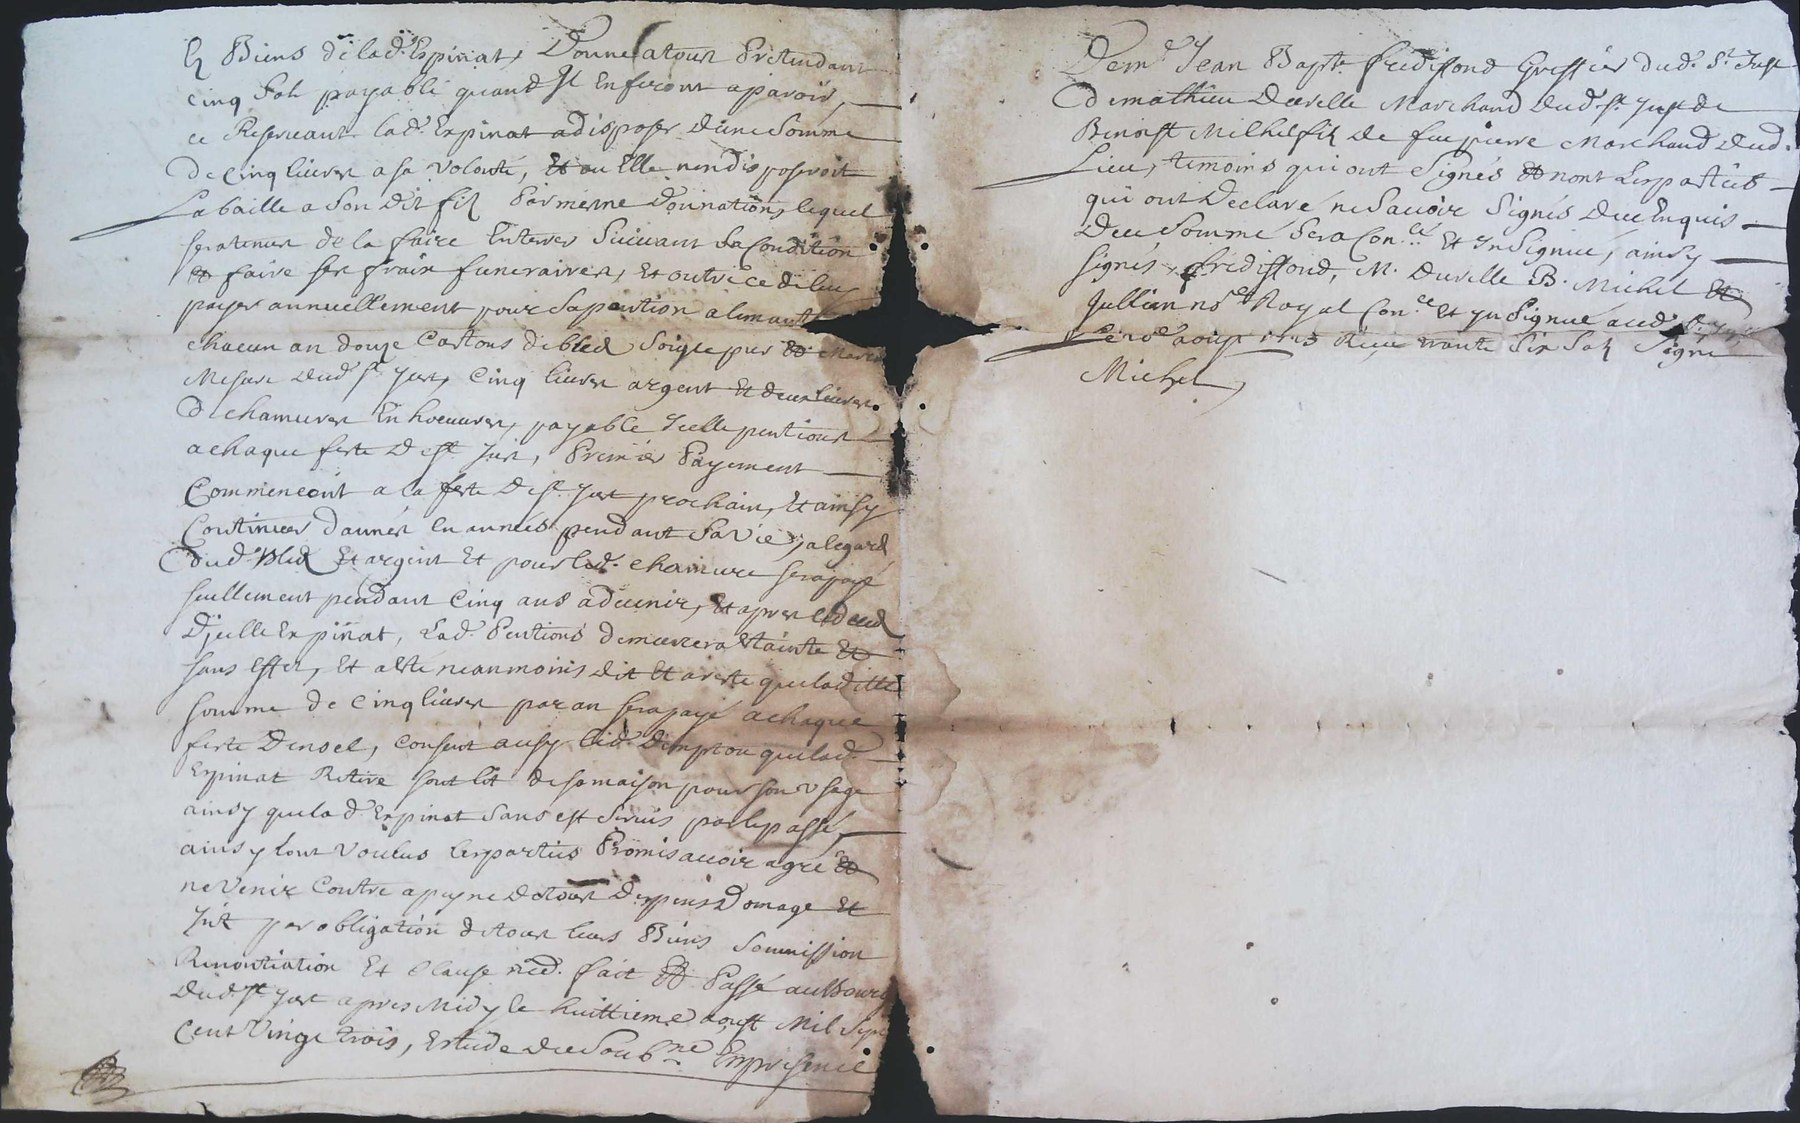 Es Biens de lad. Espinat, Donne a tous Pretendant
cinq sols payable quant Il en feront aparoir,
ce Reservant lad. Espinat a disposer d'une somme
de cinq livres a sa volonté, et ou Elle n'en disposeroit
La baille a son dit fils Par mesme Donnation, lequel
sera tenus de la faire Enterrer Suivant sa Condition
et faire ses frais funeraires, et outre ce de luy
payer annuellement pour sa pention alimant
chacun an douze Cartons de bled soigle pur et
Mesure dud. st Just, cinq livres argent et deux livres
de chamures En hoeuvres, payable Icelle pentions
a chaque feste de st Just, Premier Payement
Commencant a la feste de st Just prochain, Et ainsy
Continuer d'année en années pendant sa vie, a legard
dud. Bled et argent et pour lad. chamure sera payé
seullement pendant Cinq ans a devenir, Et apres le deced
d'jcelle Espinat, Lad. Pentions demeurera Etainte et
sans effet, Et a esté neanmoins dit et aresté que laditte
somme de cinq livres par an sera payé a chaque
feste de noel, consent ausy led. que lad.
Espinat Retire sont lit de sa maison pour son usage
ainsy que lad. Espinat sans est servis par le passé,
ainsy l'ont voulus les parties Promis avoir agré et
ne venir contre a peyne de tous Despens Domage et
Jnt. par obligation de tous leurs Biens Soumission
Renontiation Et clause necd. fait et Passé au Bourg
dud. st Just apres Midy le huittieme aoust Mil Sept
Cent Vingt trois, Estude du Soub.ne En presence
De m.e Jean Bapt. Frediffond Greffier dud. St Just
de mathieu Deville Marchand dud. st Just de
Benoist Milhel fils de feu pierre Marchand dud.
Lieu, temoins qui ont Signés et non Les parties
qui ont Declaré ne Savoir Signés Due Enquis
Due Sommé Sera Con.llé Et Insignué, ainsy
signés, Frediffond, M. Deville B. Michel et
Jullien no.re Royal Con.llé Et Insignué aud. st Just
Le 10e aoust 1723 Reçu trante six sols Signé
Michel